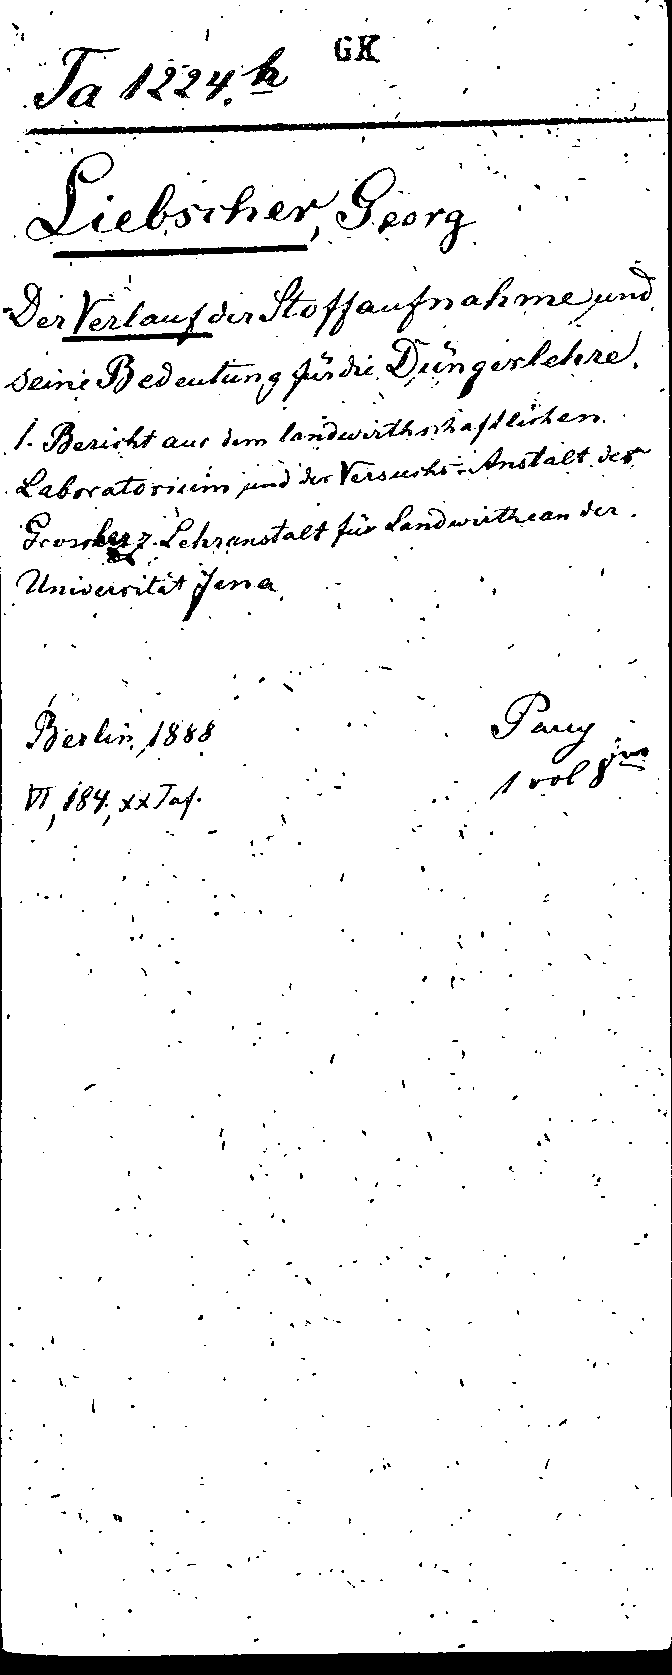 GK
Ta 1224. h
Liebscher, Georg
Der Verlauf der Stoffaufnahme und
seine Bedeutung für die Düngerlehre.
1. Bericht aus dem landwirthschaftlichen
Laboratorium und der Versuchs-Anstalt der
Grossherz. Lehranstalt für Landwirthe an der
Universität Jena
Berlin, 1888
VI, 184, xx Taf.
Parey
1 vol 8vo